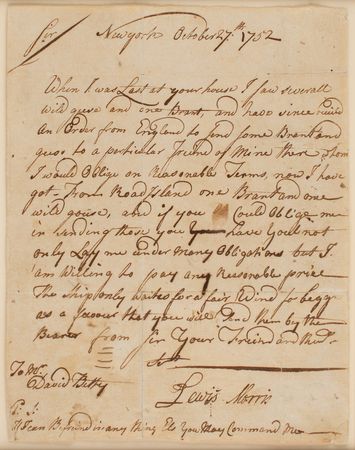 Sir Newyork October 27.th 1752
When I was Last at your house I Saw severall
wild geese and one Brant, and have since
An Order from England to send some Brant and
gees to a particular friend of Mine there Whom
I would Oblige on Reasonable Terms, now I have
got from Road Island one Brant and one
wild goose, and if you Could Oblige me
in sending those you have You'l not
only Lay me under Many Obligations but I
am Willing to pay any Reasonable price
The Ship only waites for a fair Wind so begg
as a favour that you will Send them by the
Bearer from Sir Your Friend and
To Mr.
David
Lewis Morris
P: S:
If I can Be in any thing Els You May Command Me